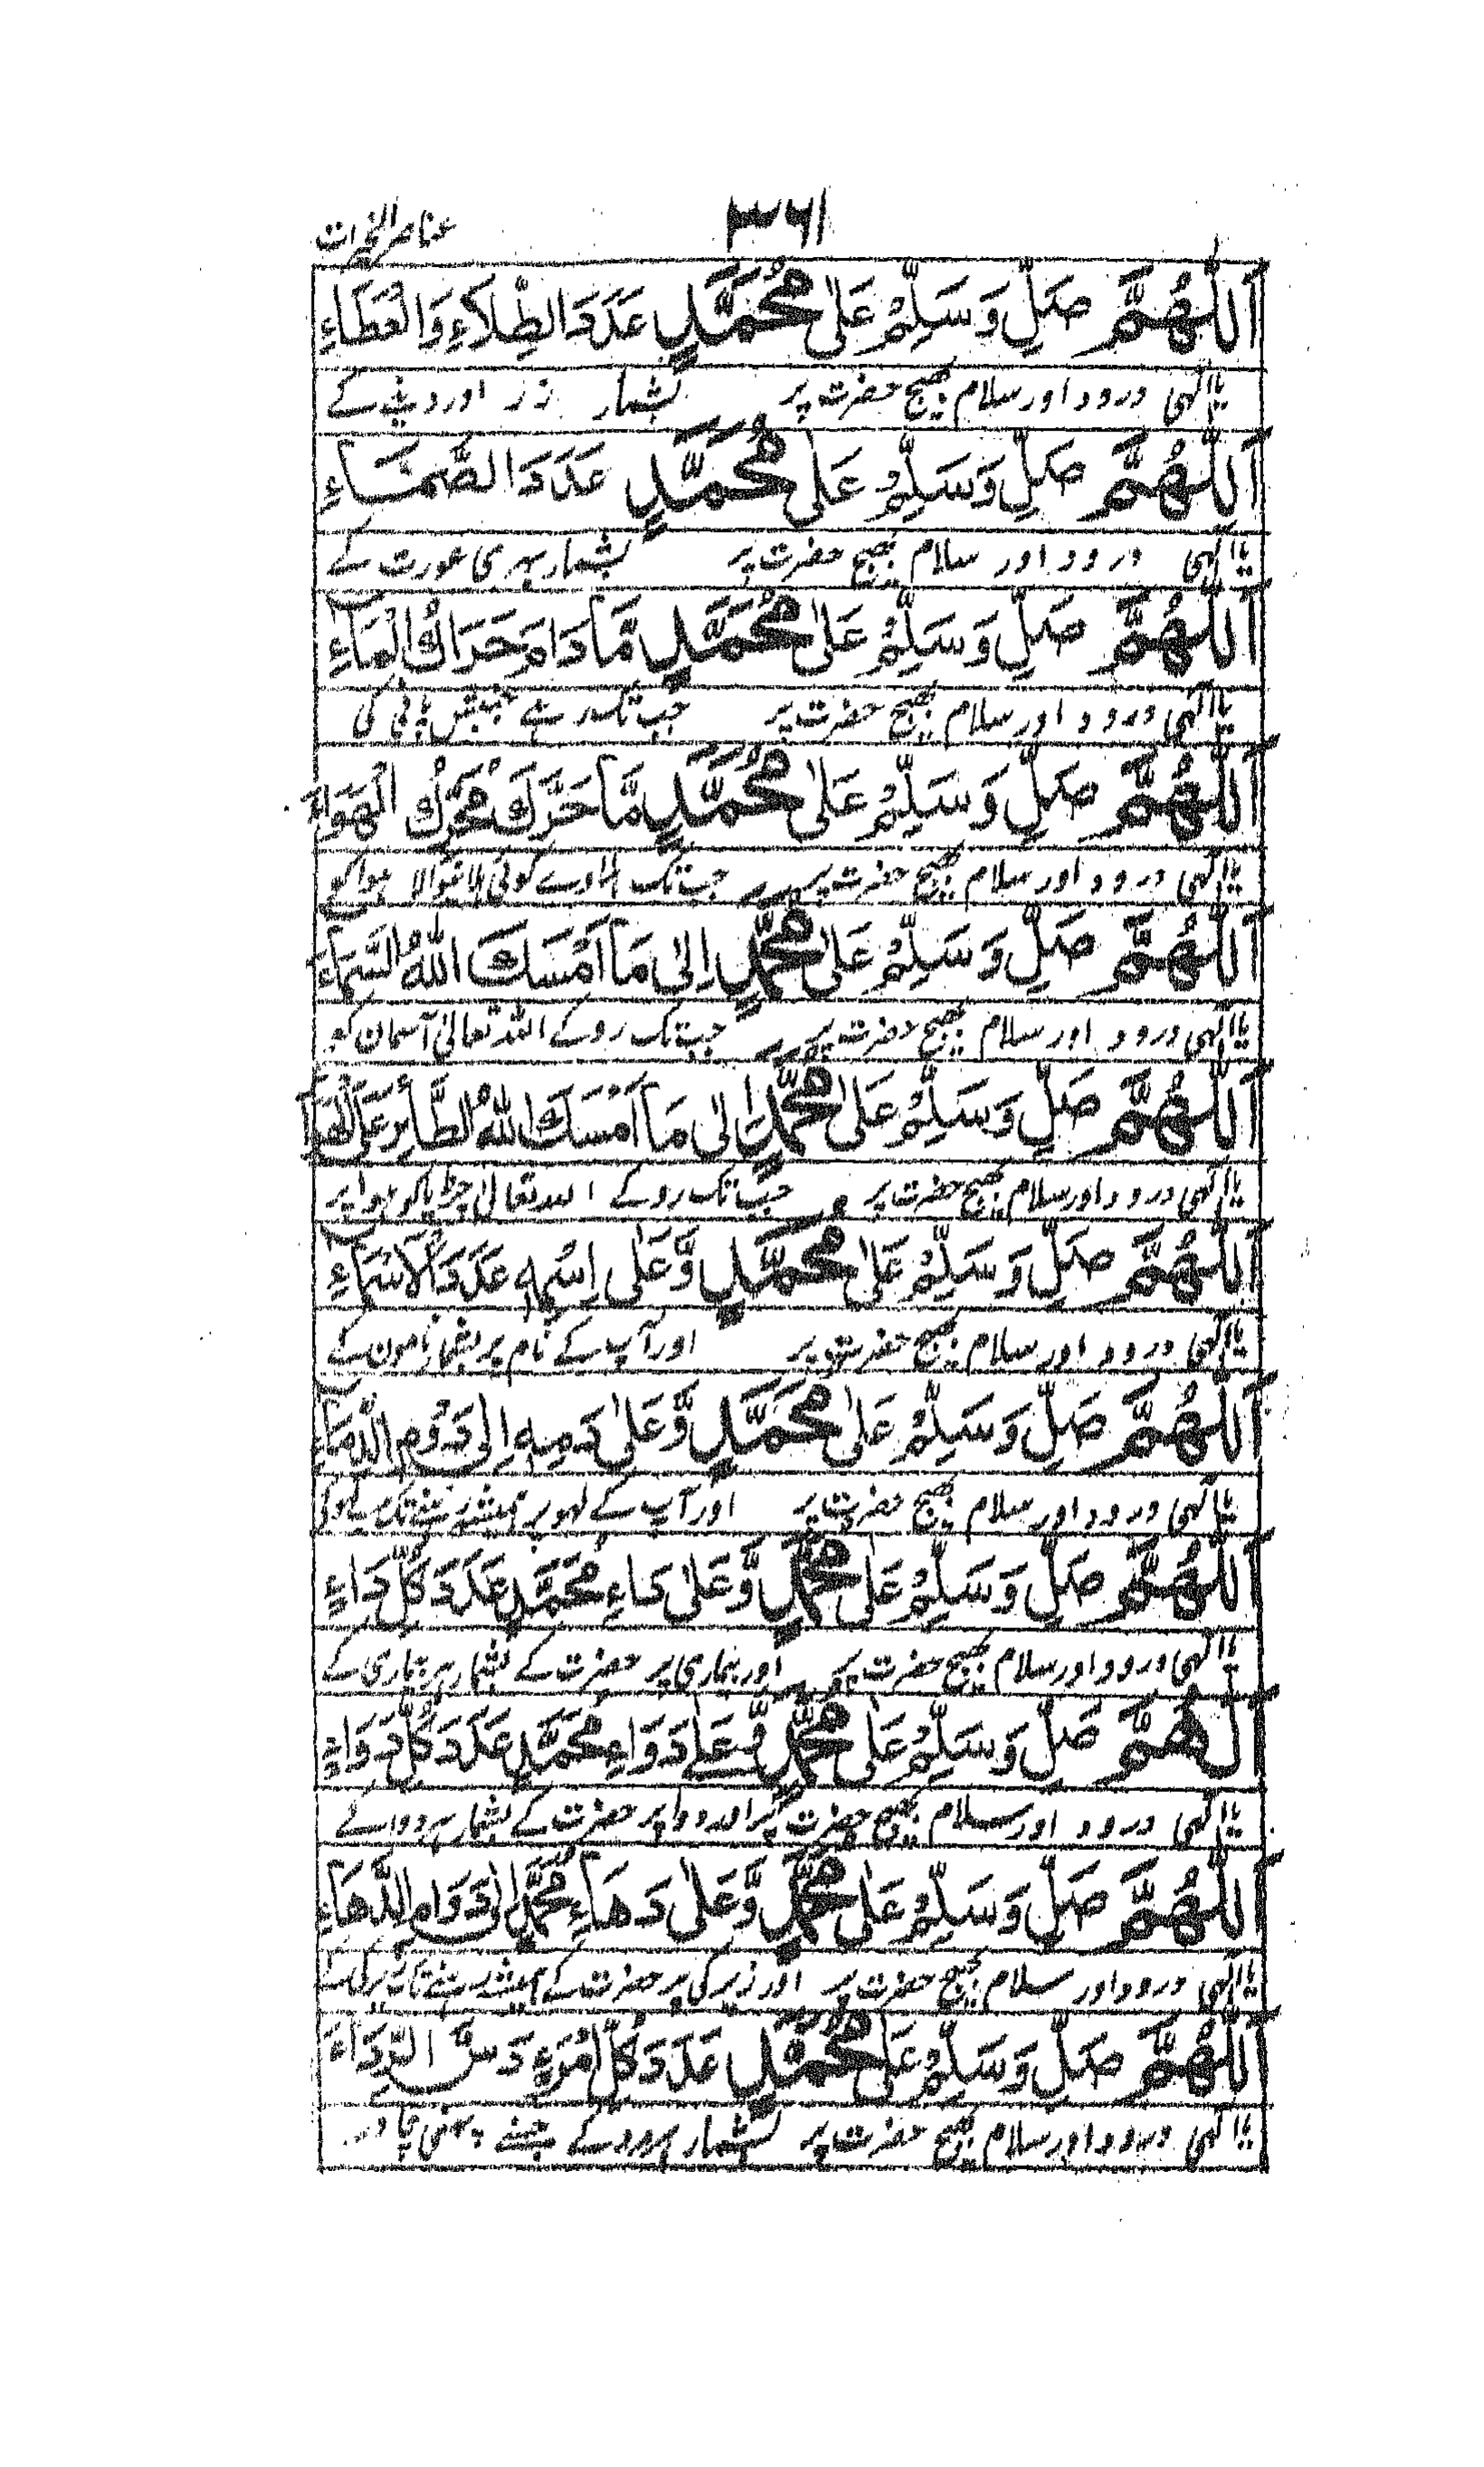 ٣٦١
عناصر الخیرات
اَللّٰهُمَّ صَلِّ وَسَلِّمْ عَلٰى مُحَمَّدٍ عَدَدَ الطِّلَاءِ وَالْعَطَاءِ
یا الٰہی درود اور سلام بھیج حضرت پر بشمار زر اور دینے کے
اَللّٰهُمَّ صَلِّ وَسَلِّمْ عَلٰى مُحَمَّدٍ عَدَدَ الصَّمَّاءِ
یا الٰہی درود اور سلام بھیج حضرت پر بشمار بہری عورت کے
اَللّٰهُمَّ صَلِّ وَسَلِّمْ عَلٰى مُحَمَّدٍ مَّا دَامَ حَرَاكُ الْمَاءِ
یا الٰہی درود اور سلام بھیج حضرت پر جب تک رہے جنبش پانی کی
اَللّٰهُمَّ صَلِّ وَسَلِّمْ عَلٰى مُحَمَّدٍ مَّا حَرَّكَ مُحَرِّكُ الْهَوَاءِ
یا الٰہی درود اور سلام بھیج حضرت پر جب تک ہلاوے کوئی ہلانیوالا ہوا کو
اَللّٰهُمَّ صَلِّ وَسَلِّمْ عَلٰى مُحَمَّدٍ اِلٰى مَا اَمْسَكَ اللّٰهُ السَّمَاءَ
یا الٰہی درود اور سلام بھیج حضرت پر جب تک روکے اللہ تعالیٰ آسمان کو
اَللّٰهُمَّ صَلِّ وَسَلِّمْ عَلٰى مُحَمَّدٍ اِلٰى مَا اَمْسَكَ اللّٰهُ الطَّائِرَ عَلَى الْهَوَاءِ
یا الٰہی درود اور سلام بھیج حضرت پر جب تک روکے اللہ تعالیٰ چڑیا کو ہوا پر
اَللّٰهُمَّ صَلِّ وَسَلِّمْ عَلٰى مُحَمَّدٍ وَّعَلٰى اِسْمِهٖ عَدَدَ الْاَسْمَاءِ
یا الٰہی درود اور سلام بھیج حضرت پر اور آپ کے نام پر بشمار ناموں کے
اَللّٰهُمَّ صَلِّ وَسَلِّمْ عَلٰى مُحَمَّدٍ وَّعَلٰى دَمِهٖ اِلٰى دَوْمِ الدِّمَاءِ
یا الٰہی درود اور سلام بھیج حضرت پر اور آپ کے لہو پر ہمیشہ رہنے تک لہو کی
اَللّٰهُمَّ صَلِّ وَسَلِّمْ عَلٰى مُحَمَّدٍ وَّعَلٰى دَاءِ مُحَمَّدٍ عَدَدَ كُلِّ دَاءٍ
یا الٰہی درود اور سلام بھیج حضرت پر اور بیماری پر حضرت کے بشمار ہر بیماری کے
اَللّٰهُمَّ صَلِّ وَسَلِّمْ عَلٰى مُحَمَّدٍ وَّعَلٰے دَوَاءِ مُحَمَّدٍ عَدَدَ كُلِّ دَوَاءٍ
یا الٰہی درود اور سلام بھیج حضرت پر اور دوا پر حضرت کے بشمار ہر دوا کے
اَللّٰهُمَّ صَلِّ وَسَلِّمْ عَلٰى مُحَمَّدٍ وَّعَلٰى دَهَاءِ مُحَمَّدٍ اِلٰى دَوَامِ الدَّهَاءِ
یا الٰہی درود اور سلام بھیج حضرت پر اور زیرکی پر حضرت کے ہمیشہ رہنے تک زیرکی کے
اَللّٰهُمَّ صَلِّ وَسَلِّمْ عَلٰى مُحَمَّدٍ عَدَدَ كُلِّ امْرَءٍ الرِّدَاءَ
یا الٰہی درود اور سلام بھیج حضرت پر بشمار ہر مرد کے جسنے پہنی چادر